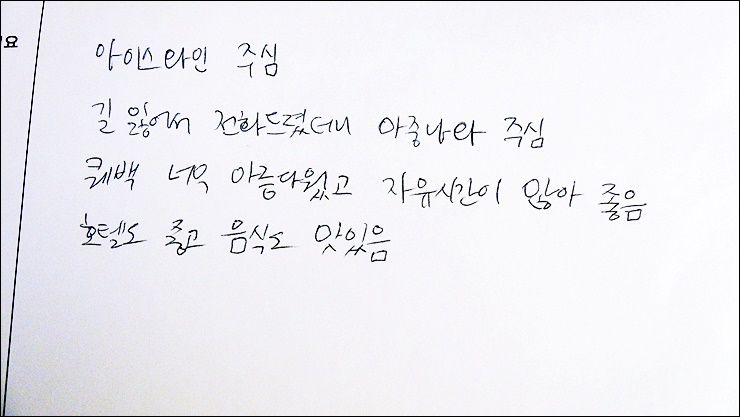 요
아이스와인 주심
길 잃어서 전화드렸더니 마중나와 주심
퀘백 너무 아름다웠고 자유시간이 많아 좋음
호텔도 좋고 음식도 맛있음